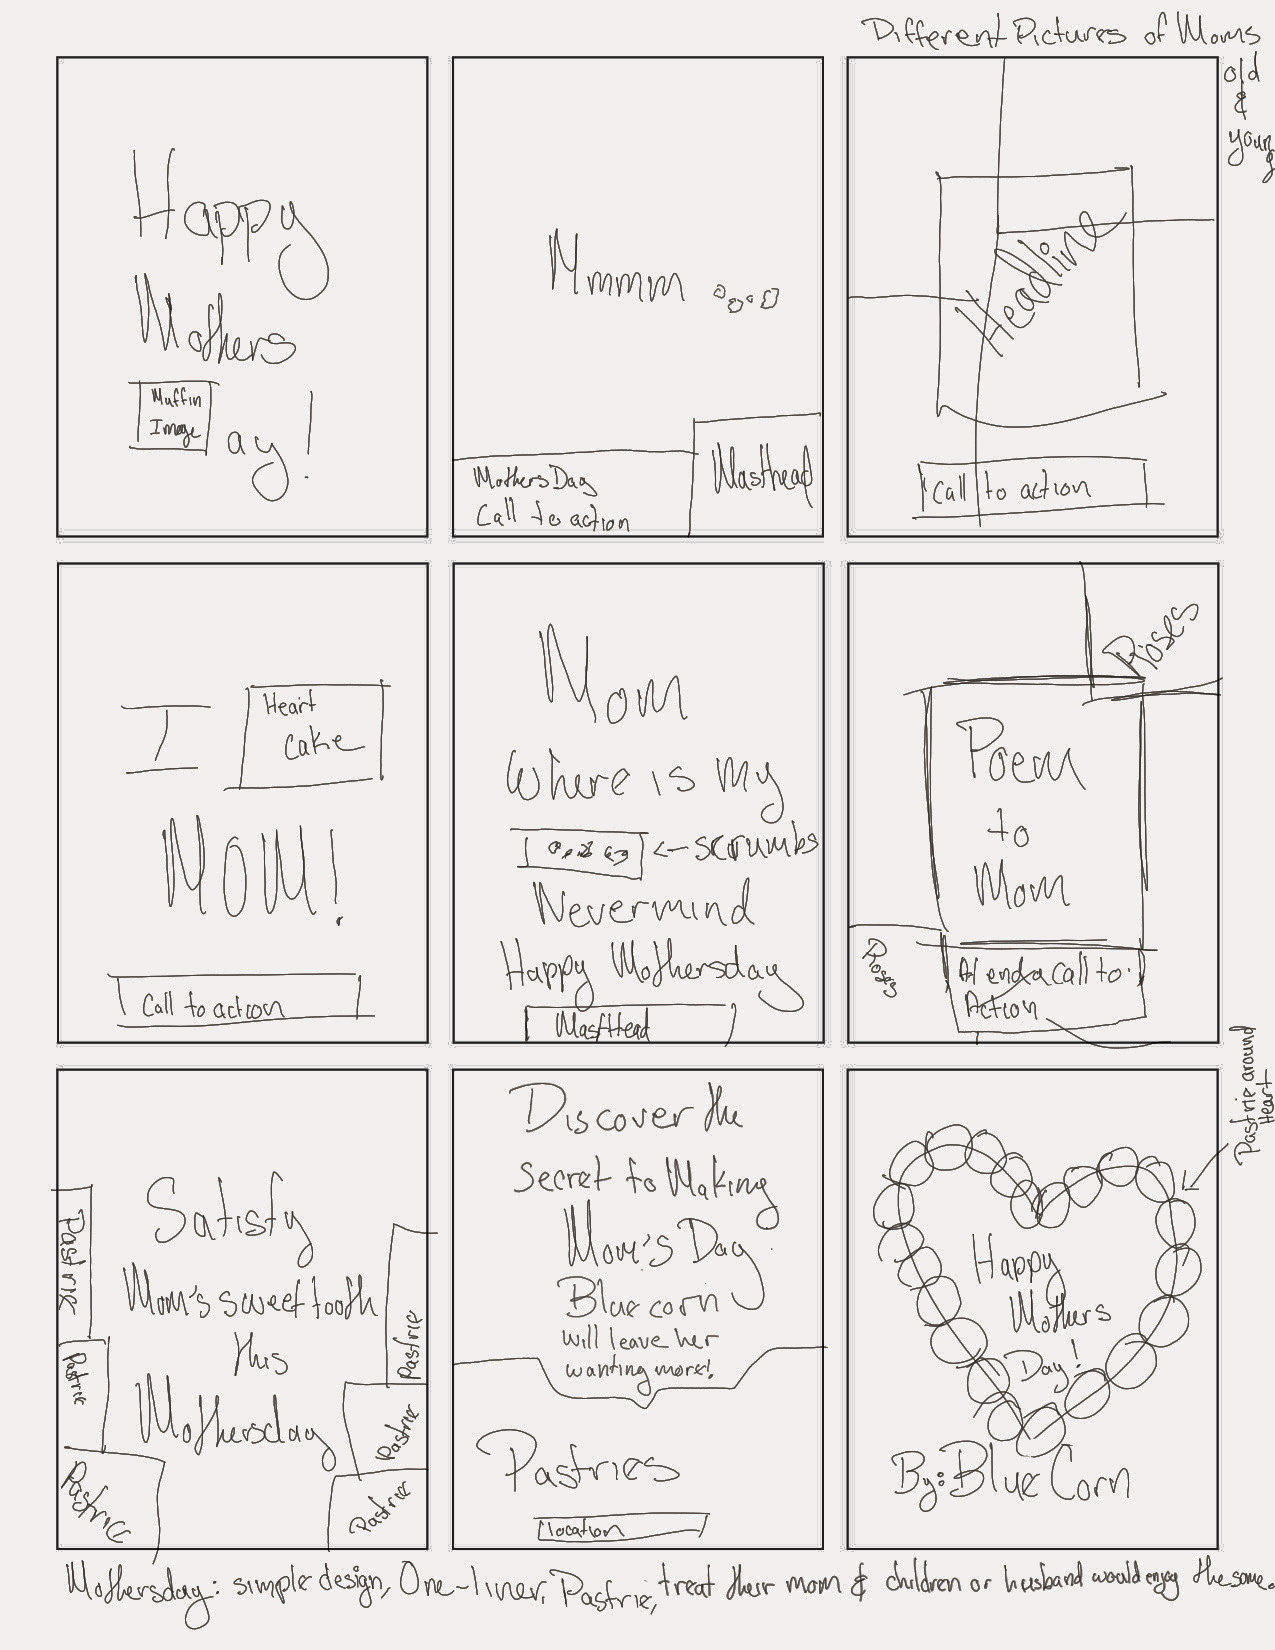 Different Pictures of Moms
old
&
young
Happy
Mothers
Muffin
Image
ay!
Mmmm ....
MothersDay
Call to action
Masthead
Headline
Call to action
I
Heart
cake
MOM!
Call to action
Mom
Where is my
<-scrumbs
Nevermind
Happy Mothersday
MastHead
Roses
Poem
to
Mom
Roses
At end a call to
Action
Satisfy
Mom's sweet tooth
this
Mothersday
Pastrie
Pastrie
Pastrie
Pastrie
Pastrie
Pastrie
Discover the
secret to Making
Mom's Day.
Blue corn
will leave her
wanting more!
Pastries
location
Pastrie around
Heart
Happy
Mothers
Day!
By: Blue Corn
Mothersday: simple design, One-liner, Pastrie, treat their mom & children or husband would enjoy the same.